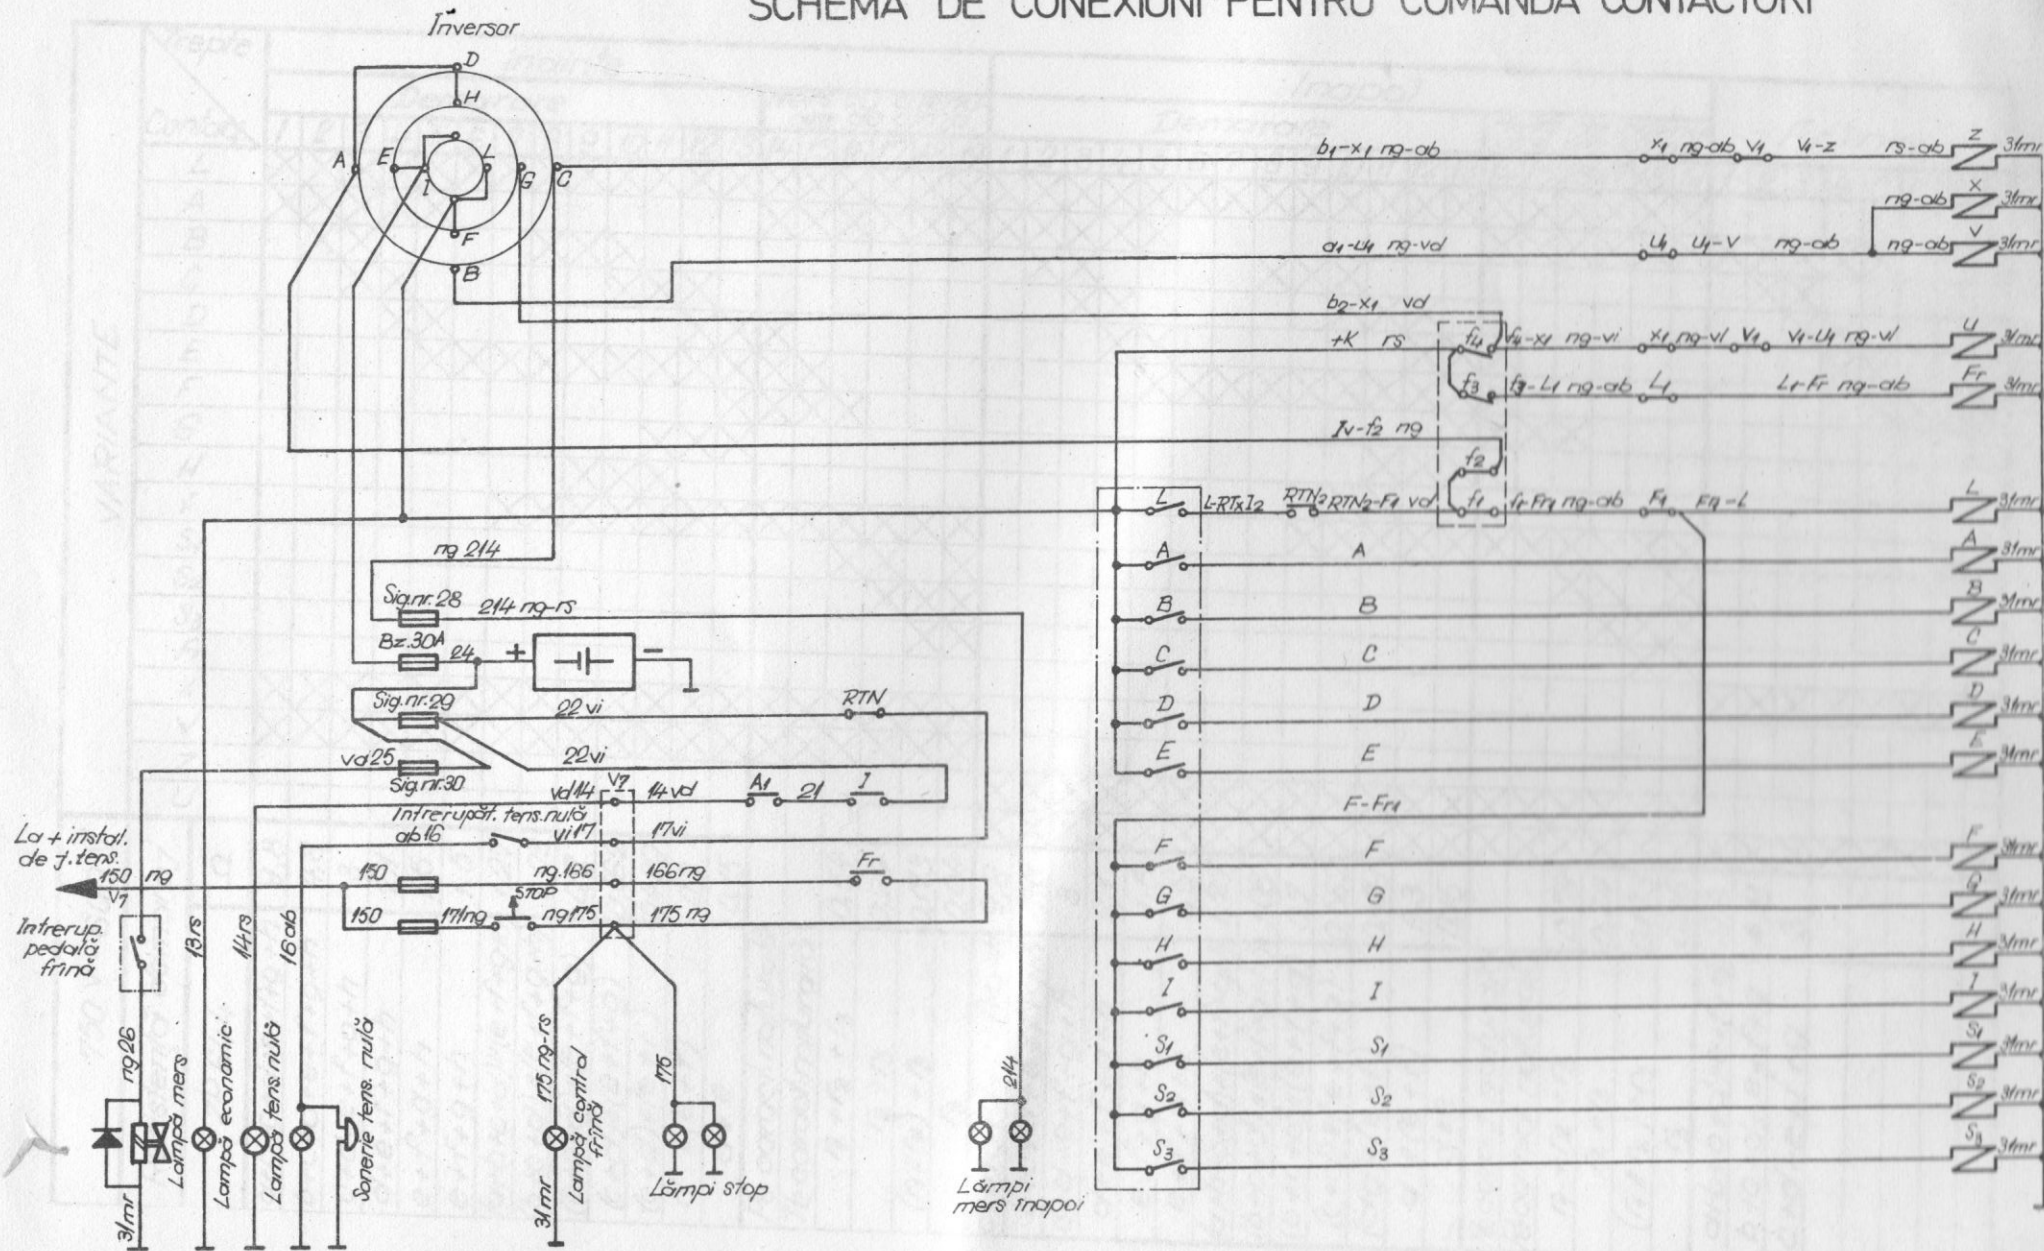 SCHEMA DE CONEXIUNI PENTRU COMANDA CONTACTORI
Inversor
D
H
A
E
I
L
G
C
F
B
b1-x1 ng-ab
x1 ng-ab V1 V1-z rs-ab
Z 31mr
ng-ab X 31mr
a1-u1 ng-vd
U1 U1-V ng-ab
ng-ab V 31mr
b2-x1 vd
+K rs
f4 f4-x1 ng-vi
x1 ng-vi V1 V1-U1 ng-vi
U 31mr
f3 f3-L1 ng-ab L1
L1-Fr ng-ab
Fr 31mr
Iv-f2 ng
f2
L L-RTxI2 RTN2 RTN2-F1 vd f1 f1-Fr1 ng-ab F1
L 31mr
A A A 31mr
B B B 31mr
C C C 31mr
D D D 31mr
E E E 31mr
F-Fr1
F F F 31mr
G G G 31mr
H H H 31mr
I I I 31mr
S1 S1 S1 31mr
S2 S2 S2 31mr
S3 S3 S3 31mr
ng 214
Sig.nr.28
214 ng-rs
Bz.30A
24 + −
Sig.nr.29
22 vi
RTN
vd 25
22vi
Sig.nr.30
vd14 V7 14 vd A1 21 I
Intrerupăt. tens.nulă
ab16 vi17 17vi
La + instal.
de j. tens.
150 ng
V7
150 ng.166 166ng Fr
STOP
150 171ng ng175 175 ng
Intrerup.
pedală
frînă
13rs
14rs
16ab
ng26
31mr
Lampă mers
Lampă economic
Lampă tens. nulă
Sonerie tens. nulă
175 ng-rs
31mr
Lampă control
frînă
175
Lămpi stop
214
Lămpi
mers înapoi
VARIANTE